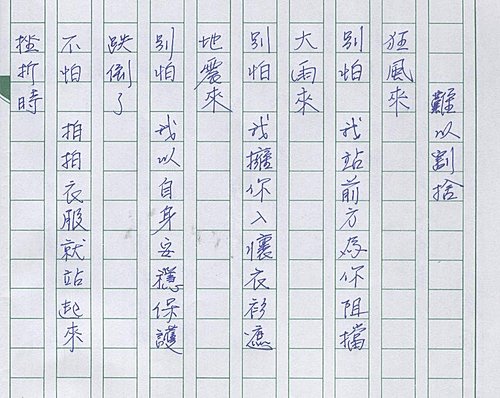 難以割捨
狂風來
別怕 我站前方為你阻擋
大雨來
別怕 我擁你入懷衣衫遮
地震來
別怕 我以自身安穩保護
跌倒了
不怕 拍拍衣服就站起來
挫折時